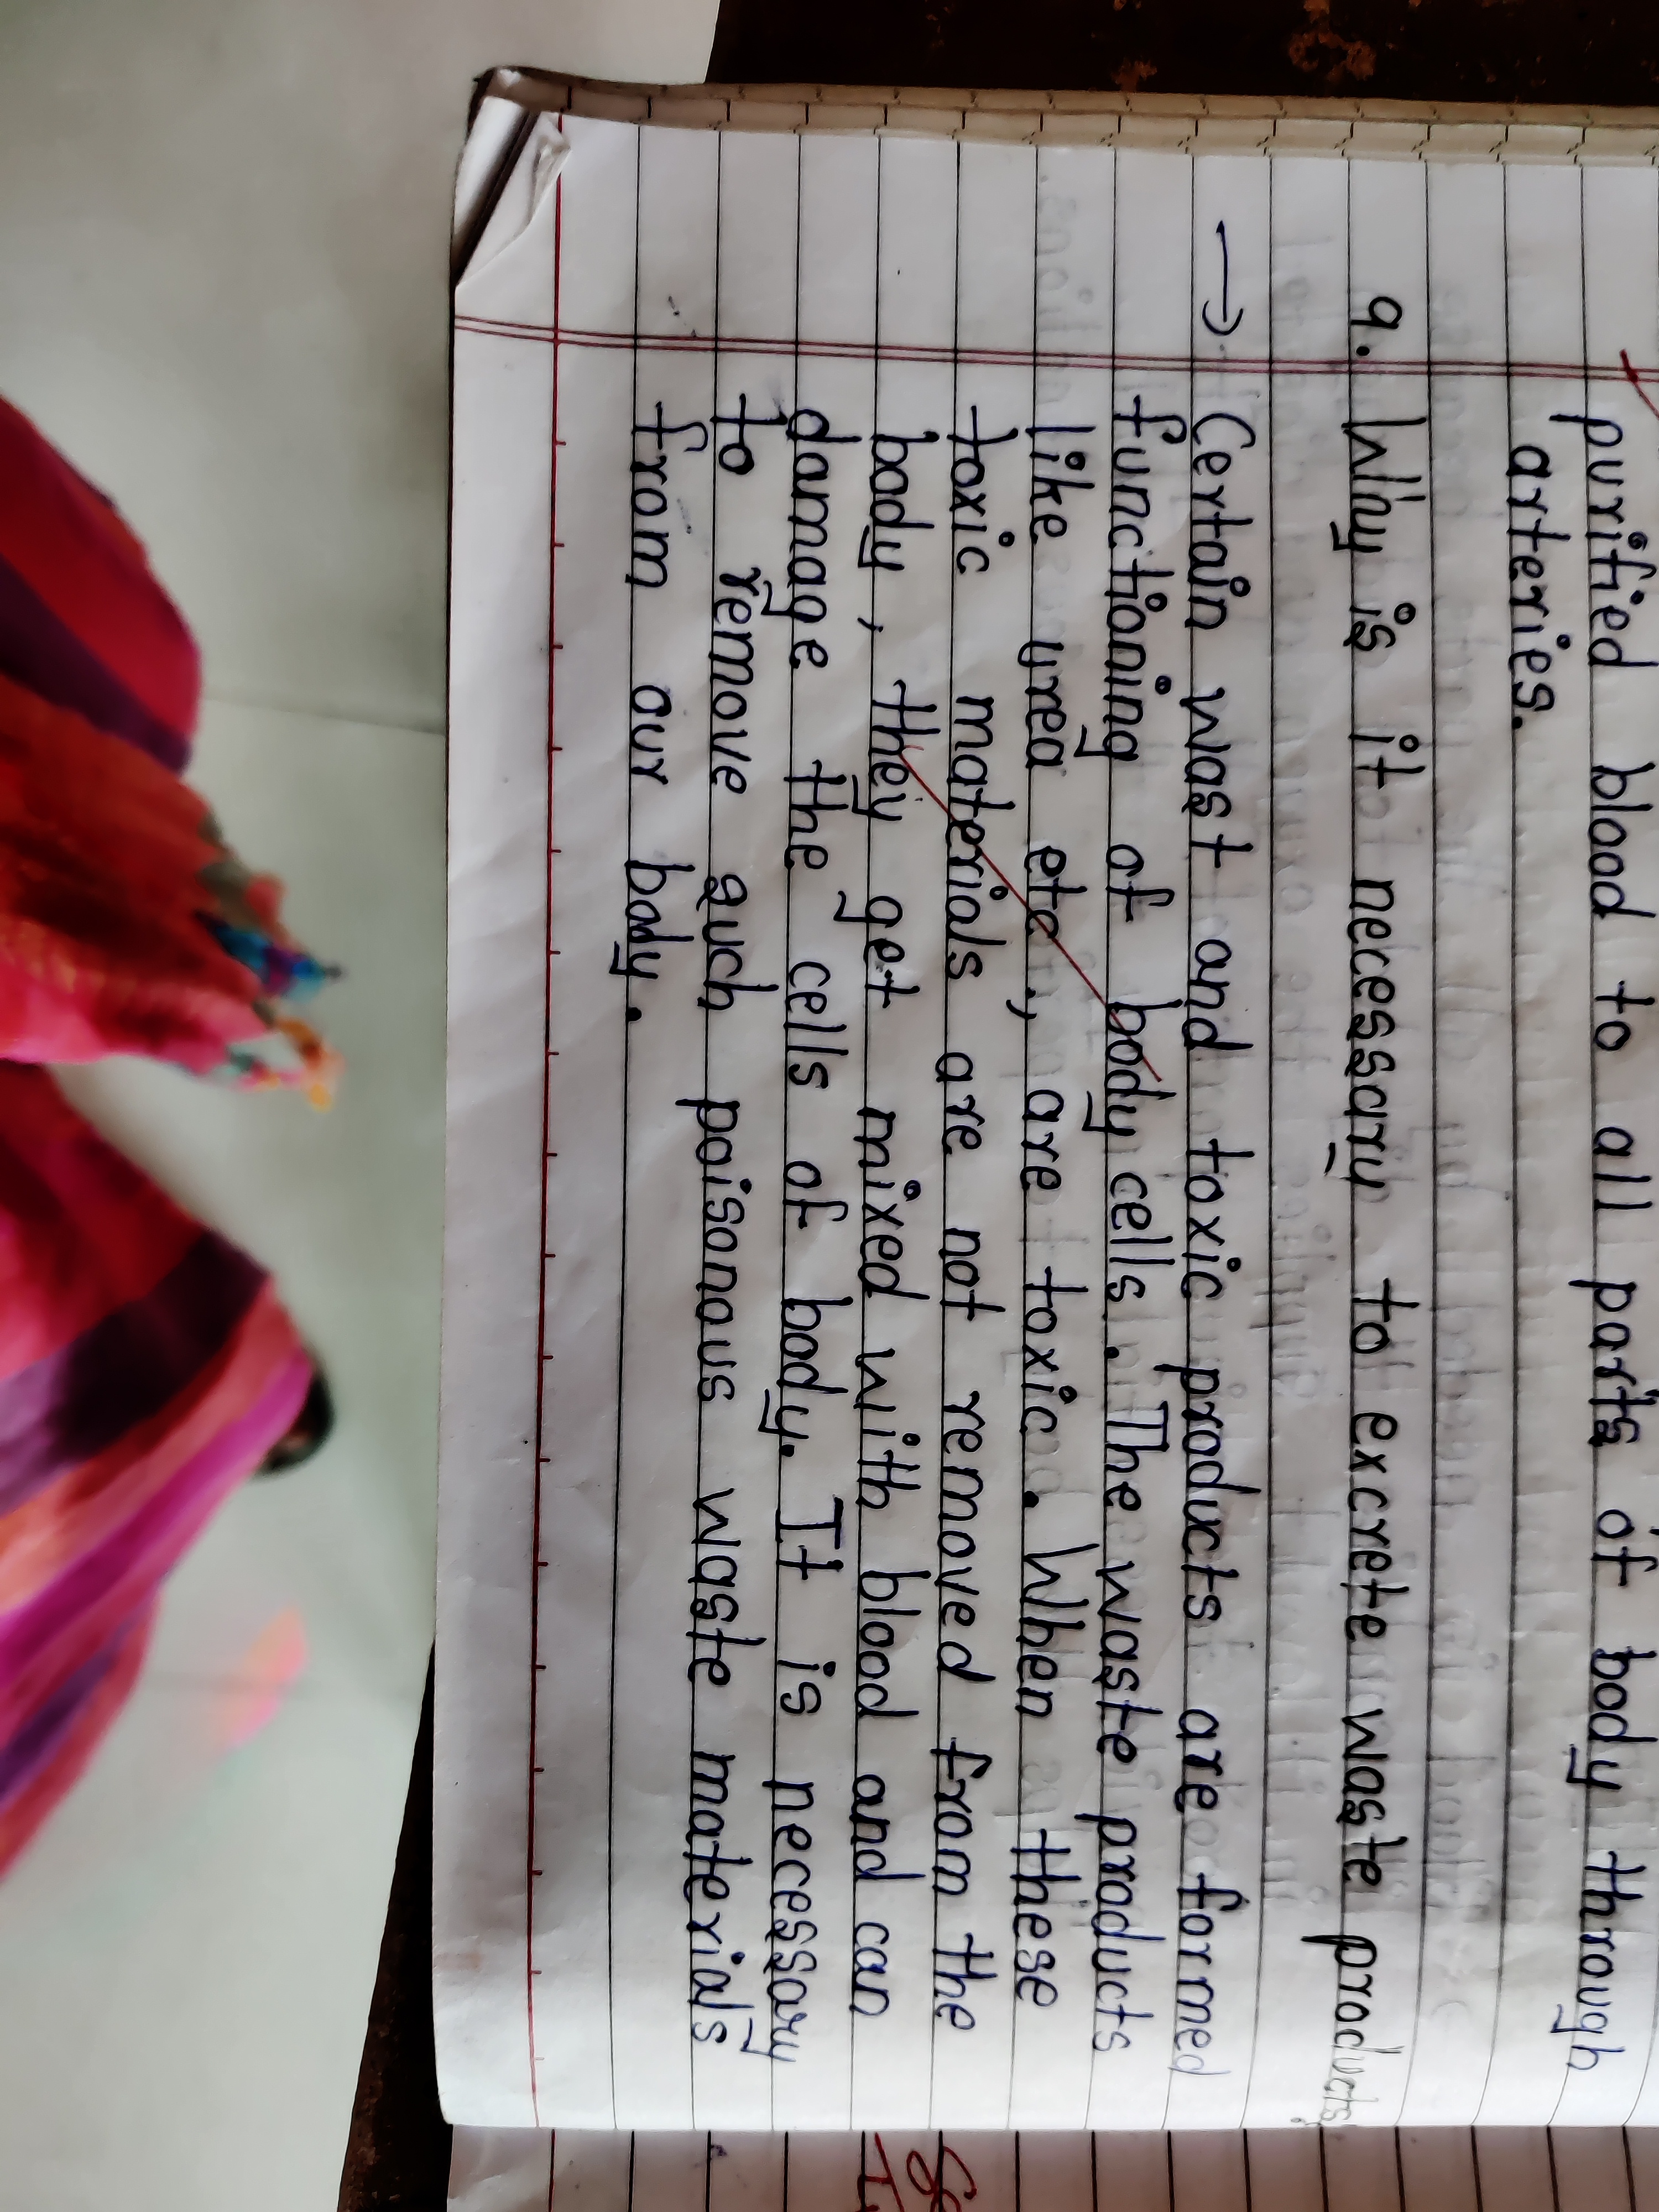 purified blood to all parts of body through
arteries.
9. Why is it necessary to excrete waste products
→ Certain wast and toxic products are formed
functioning of body cells. The waste products
like urea etc, are toxic. When these
toxic materials are not removed from the
body, they get mixed with blood and can
damage the cells of body. It is necessary
to remove such poisonous waste materials
from our body.